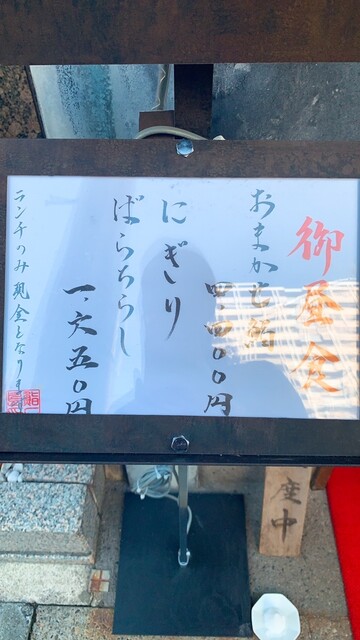 御昼食
おまかせ鮨
四、四〇〇円
にぎり
ばらちらし
一、六五〇円
ランチのみ現金となります
座中